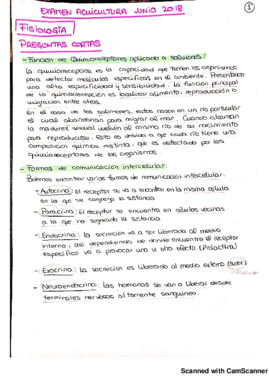 EXAMEN ACUICULTURA JUNIO 2018
1
FISIOLOGÍA
PREGUNTAS CORTAS
- Función de Quimiorreceptores aplicado a salmones:
La quimiorrecepción es la capacidad que tienen los organismos
para detectar moléculas específicas en el ambiente. Presentando
una alta especificidad y sensibilidad. La función principal
de la quimiorrecepción es localizar alimento, reproducción o
migración entre otros.
En el caso de los salmones, estos nacen en un río particular
el cual abandonan para migrar al mar. Cuando alcanzan
la madurez sexual vuelven al mismo río de su nacimiento
para reproducirse. Esto es debido a que cada río tiene una
composición química distinta que es detectada por los
quimiorreceptores de los organismos.
- Formas de comunicación intercelular.
Podemos encontrar varias formas de comunicación intercelular.
- Autocrina: El receptor se va a encontrar en la misma célula
en la que se segrega la sustancia.
- Paracrina: El receptor se encuentra en células vecinas
a la que ha segregado la sustancia.
- Endocrina: la secreción va a ser liberada al medio
interno, así dependiendo de donde encuentre el receptor
específico va a provocar uno u otro efecto. (Prolactina)
- Exocrina: la secreción es liberada al medio externo (sudor)
- Neuroendocrina: las hormonas se van a liberar desde
terminales nerviosos al torrente sanguíneo.
Scanned with CamScanner